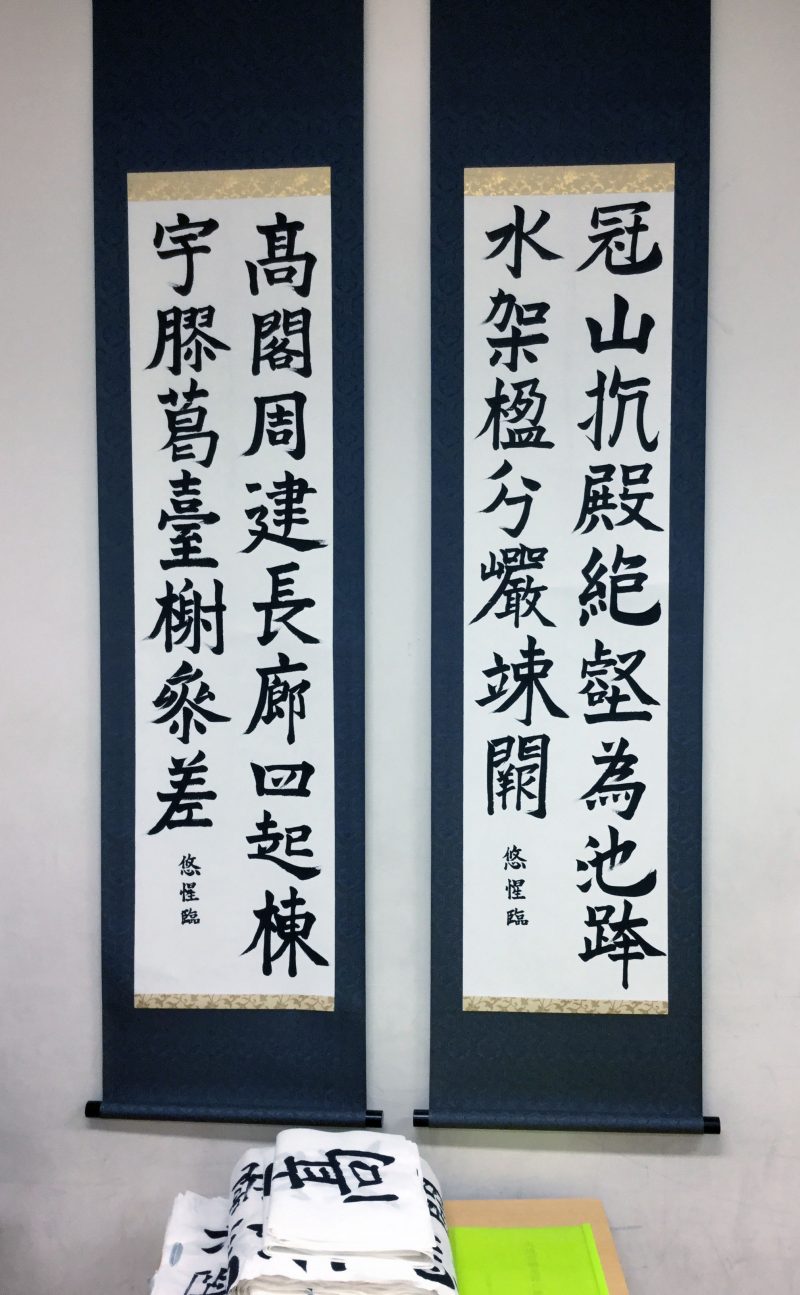 冠山抗殿絶壑為池跨
水架楹分巖竦闕
悠惺臨
髙閣周建長廊四起棟
宇膠葛臺榭參差
悠惺臨